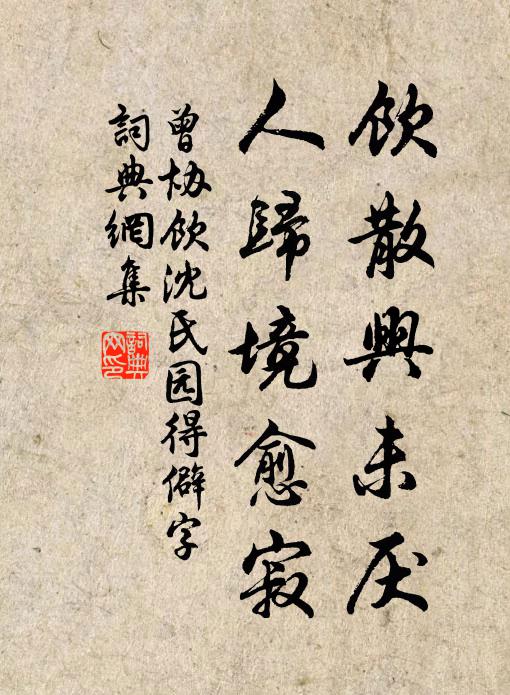 飲散興未厌
人歸境愈寂
曾协飲沈氏园得僻字
詞典網集
詞典网印